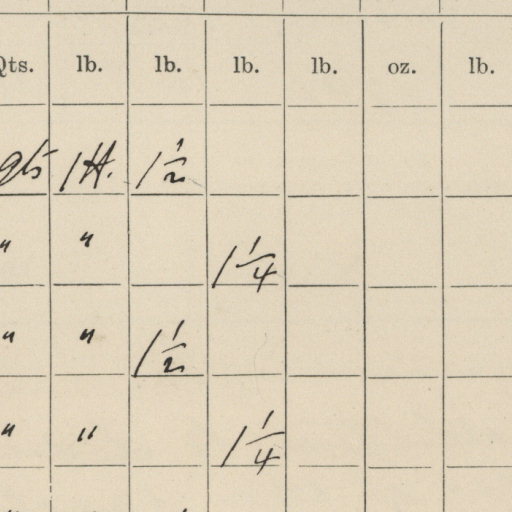 Qts. lb. lb. lb. lb. oz. lb.
qts 1 1½
" " 1¼
" " 1½
" " 1¼